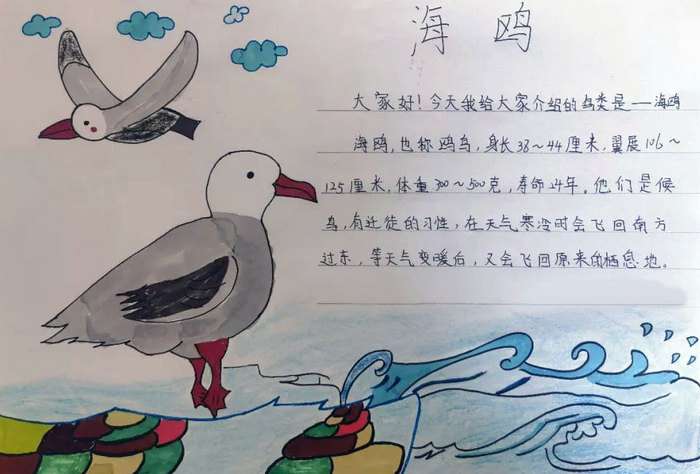 海鸥
大家好！今天我给大家介绍的鸟类是——海鸥
海鸥，也称鸥鸟，身长38～44厘米，翼展106～
125厘米，体重300～500克，寿命24年。他们是候
鸟，有迁徒的习性，在天气寒冷时会飞回南方
过冬，等天气变暖后，又会飞回原来的栖息地。